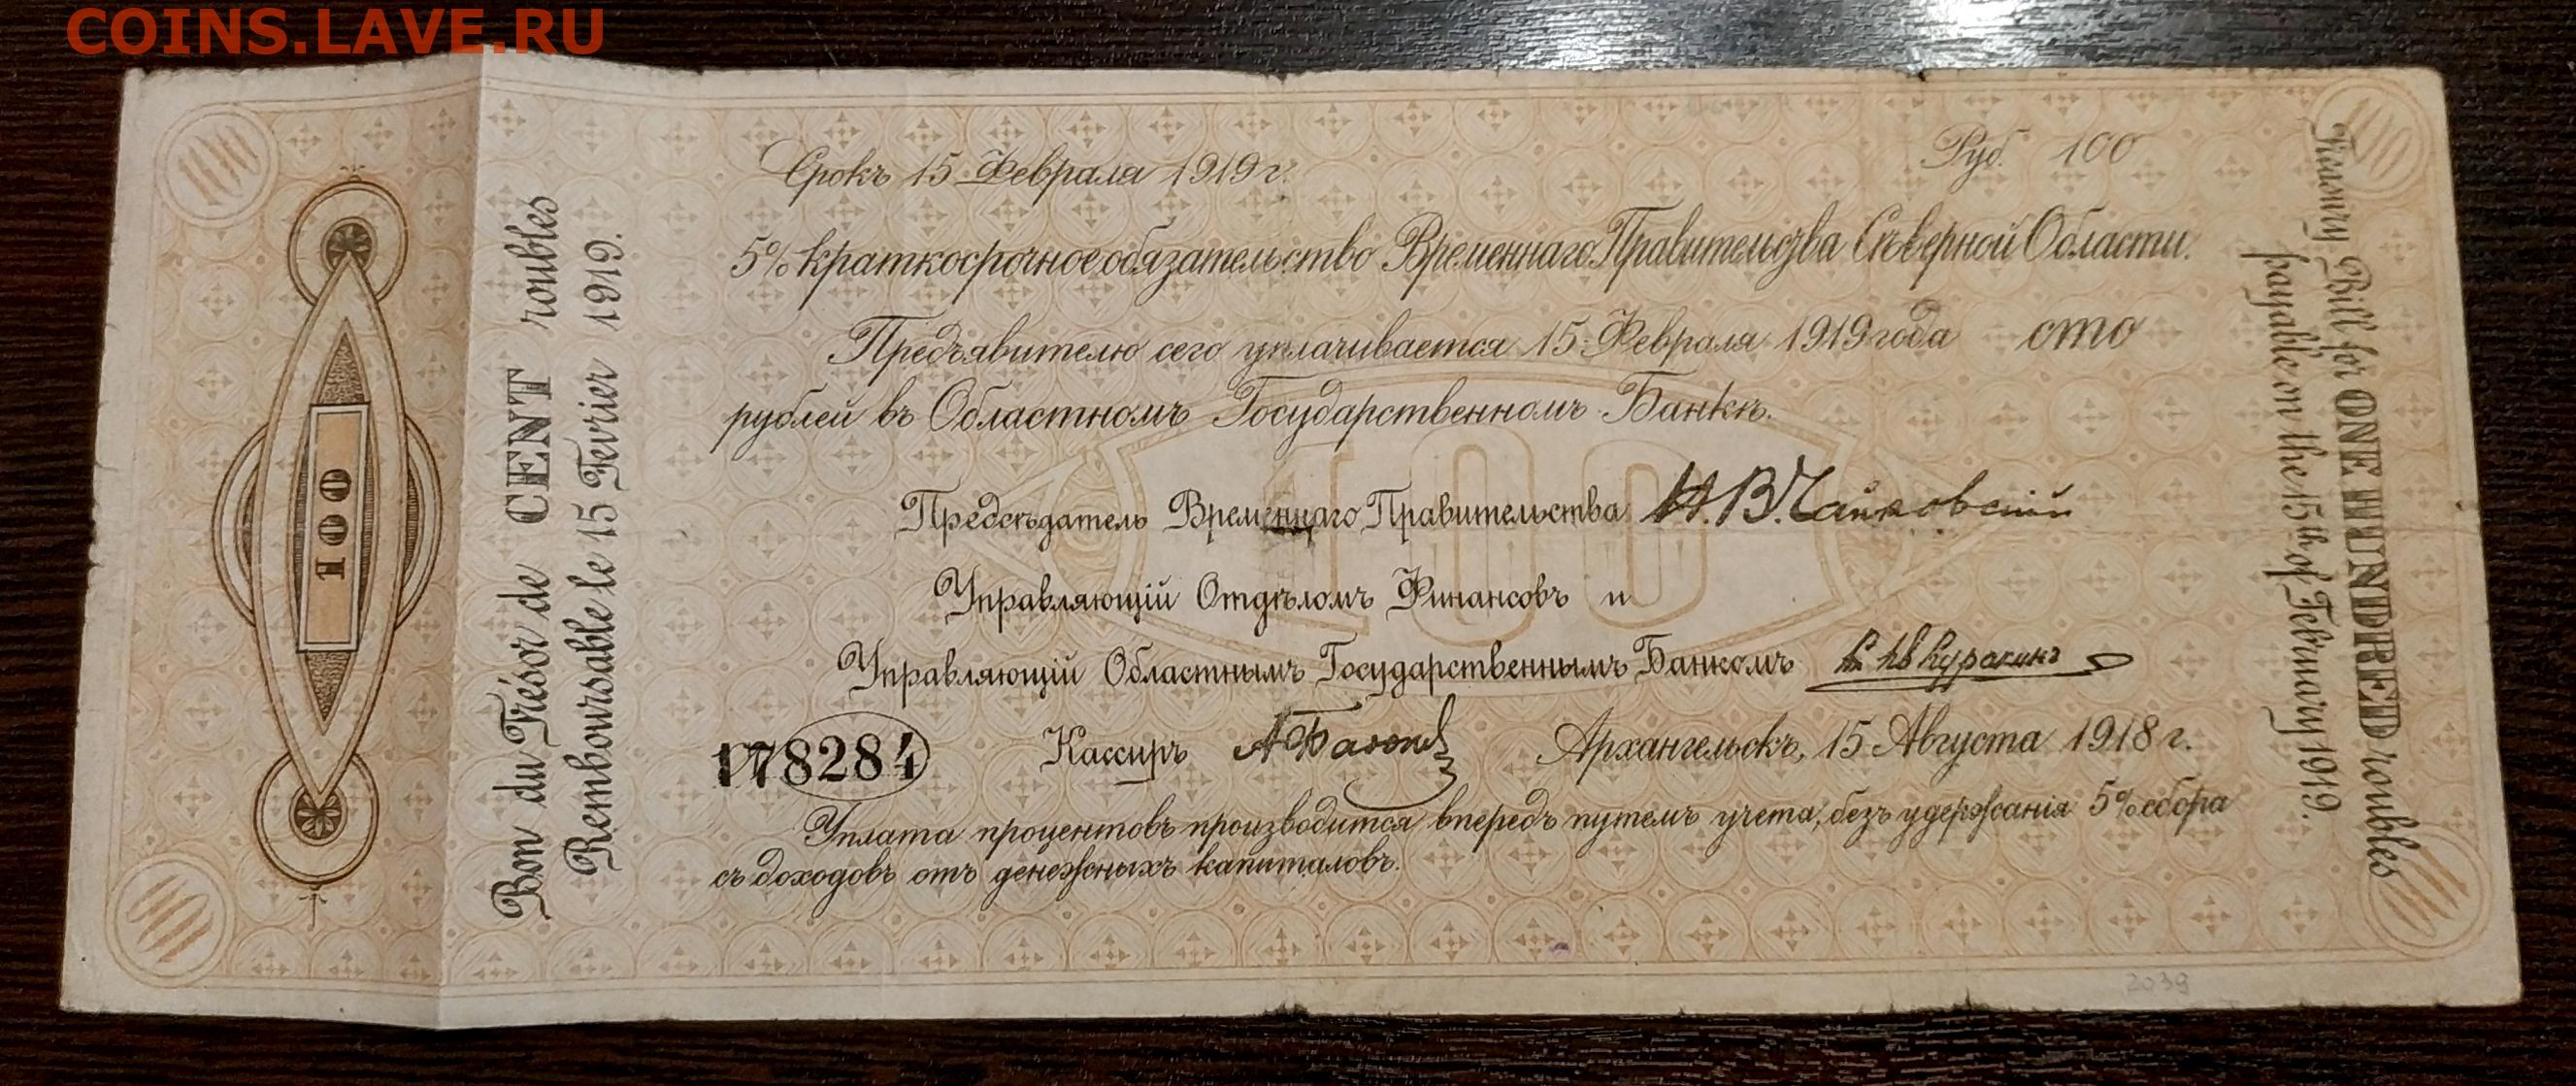 COINS.LAVE.RU
100
Bon du Trésor de CENT roubles
Remboursable le 15 Fevrier 1919.
Срокъ 15 Февраля 1919 г.
Руб. 100
5% краткосрочное обязательство Временнаго Правительства Сѣверной Области.
Предъявителю сего уплачивается 15 Февраля 1919 года сто
рублей въ Областномъ Государственномъ Банкѣ.
100
Предсѣдатель Временнаго Правительства Н.В. Чайковскій
Управляющій Отдѣломъ Финансовъ и
Управляющій Областнымъ Государственнымъ Банкомъ Куракинъ
178284
Кассиръ
Архангельскъ, 15 Августа 1918 г.
Уплата процентовъ производится впередъ путемъ учета, безъ удержанія 5% сбора
съ доходовъ отъ денежныхъ капиталовъ.
Treasury Bill for ONE HUNDRED roubles
payable on the 15th of February 1919.
2039